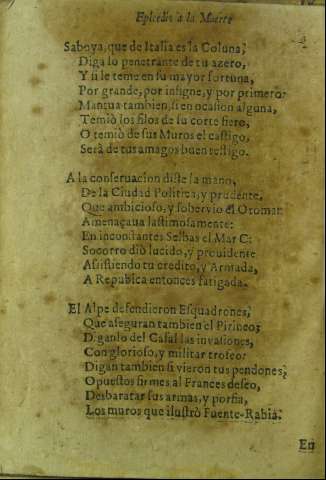 Epicedio a la Muerte
Saboya, que de Italia es la Coluna,
Diga lo penetrante de tu azero,
Y si le teme en su mayor fortuna,
Por grande, por insigne, y por primero:
Mantua tambien, si en ocasion alguna,
Temiò los filos de su corte fiero,
O temiò de sus Muros el castigo,
Serà de tus amagos buen testigo.
A la conseruacion diste la mano,
De la Ciudad Politica, y prudente,
Que ambicioso, y sobervio el Otomano
Amenaçaua lastimosamente:
En inconstantes Selbas el Mar
Socorro diò lucido, y prouidente
Assistiendo tu credito, y Armada,
A Republica entonces fatigada.
El Alpe defendieron Esquadrones,
Que aseguran tambien el Pirineo;
Diganlo del Casal las invasiones,
Con glorioso, y militar trofeo:
Digan tambien si vieron tus pendones,
Opuestos firmes al Frances deseo,
Desbaratar sus armas, y porfia,
Los muros que ilustrò Fuente-Rabia.
En